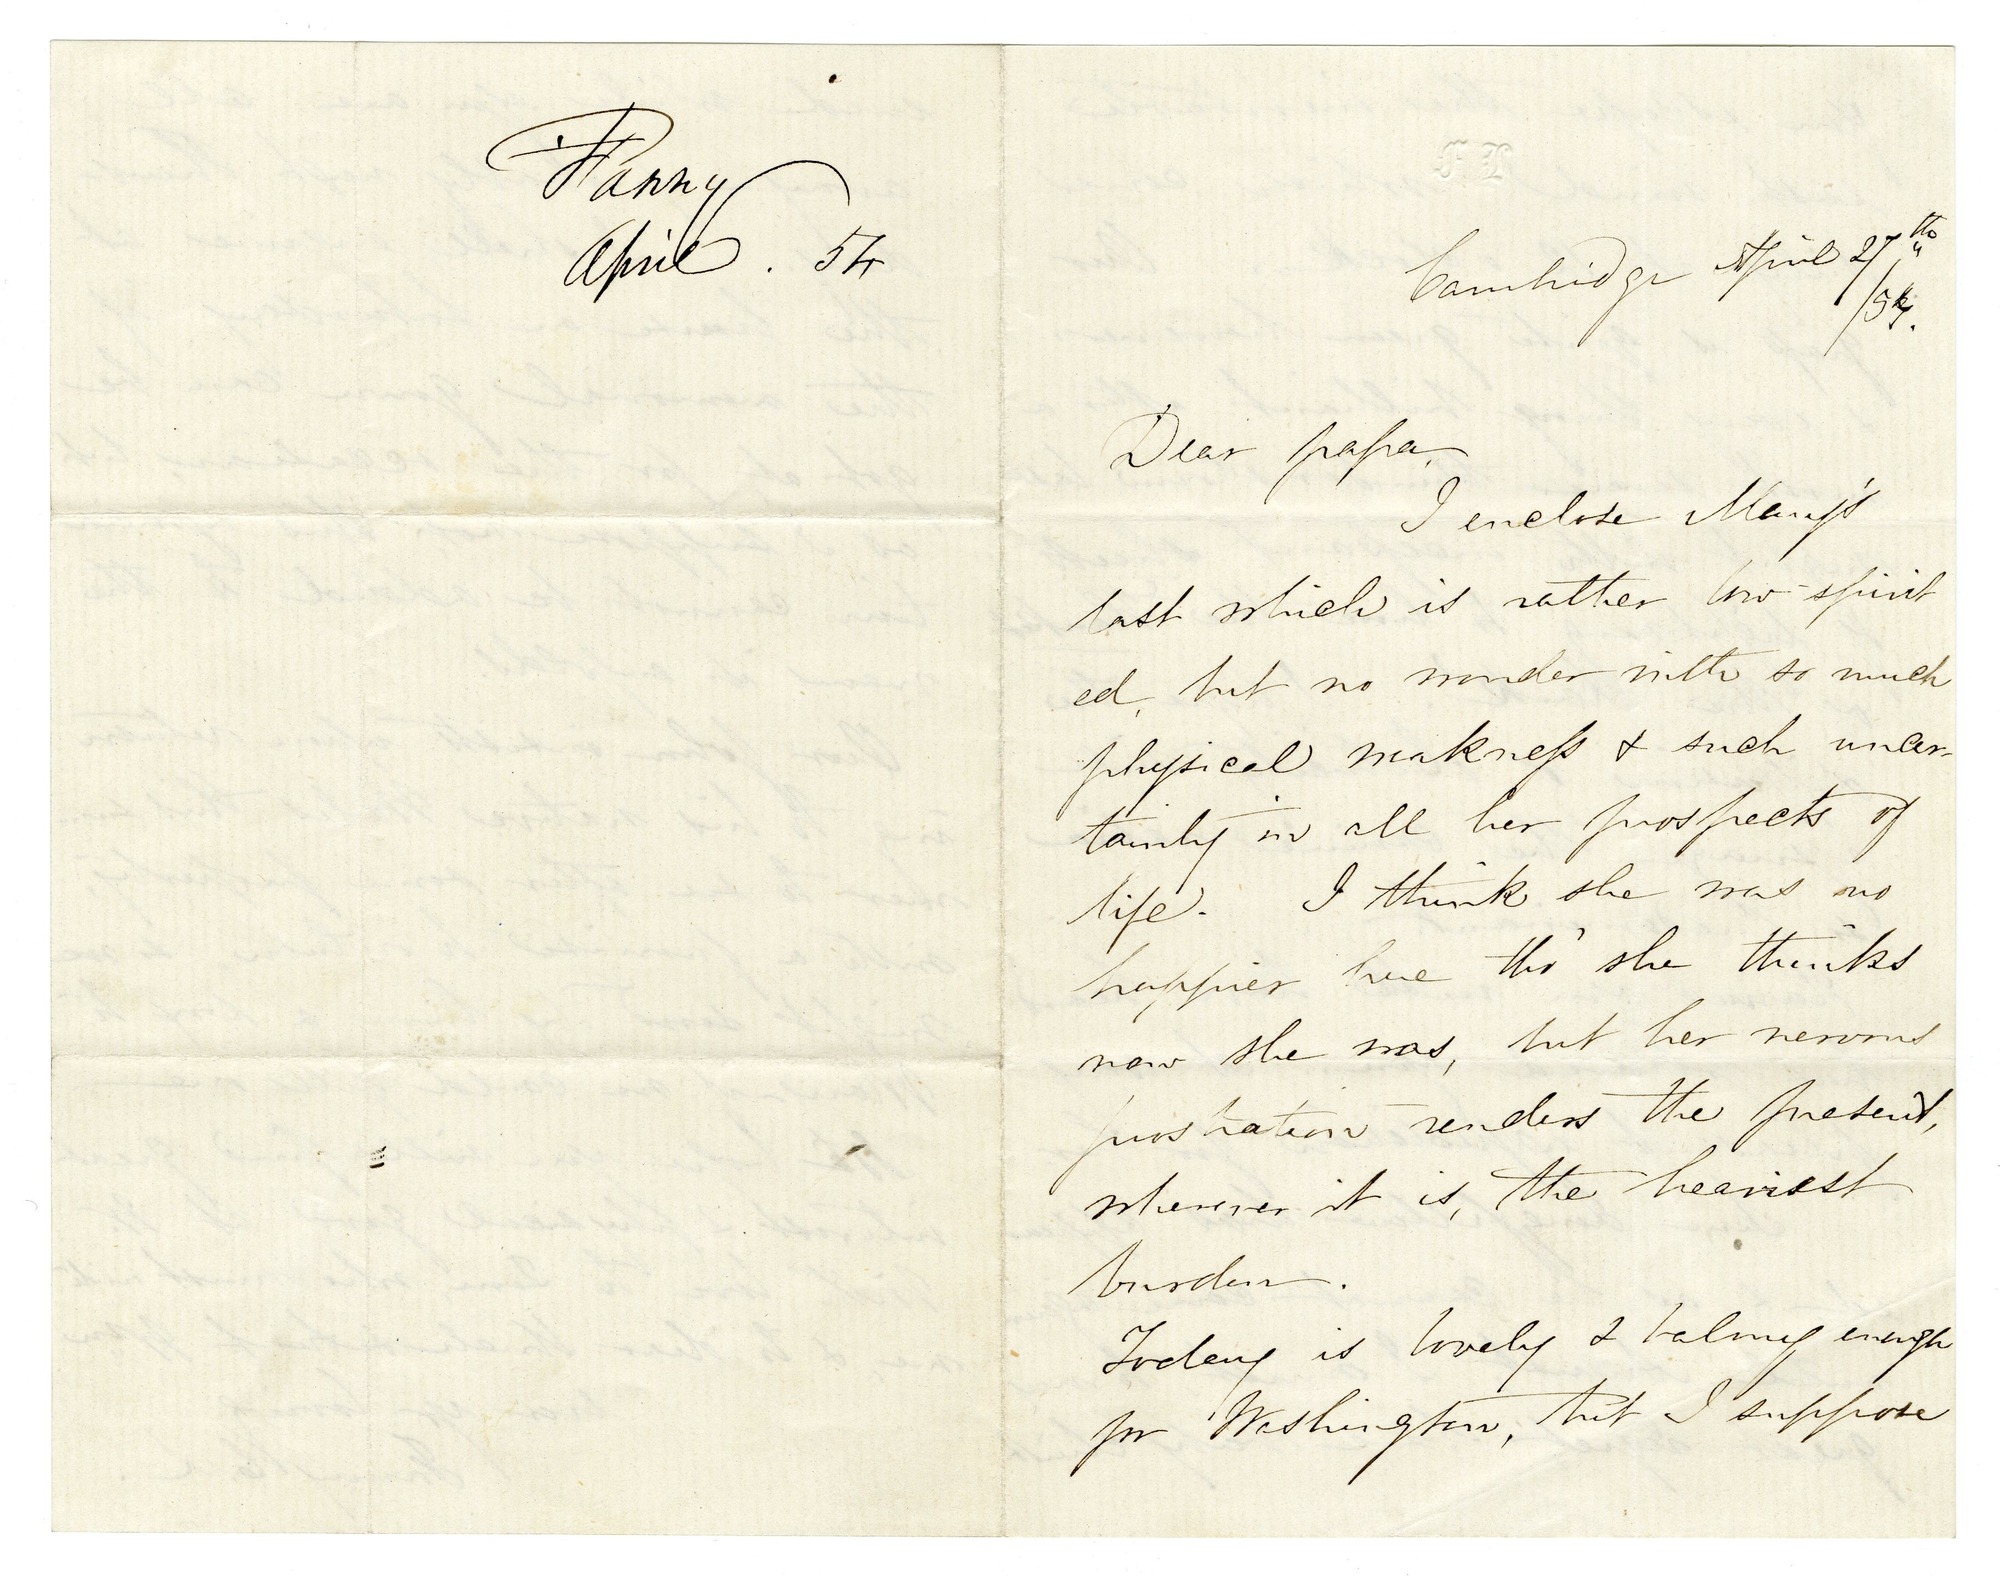 Fanny
April . 54
F L
Cambridge April 27th
/54.
Dear papa,
I enclose Mary's
last which is rather low-spirit
ed, but no wonder with so much
physical weakness & such uncer-
tainty in all her prospects of
life. I think she was no
happier here tho' she thinks
now she was, but her nervous
prostration renders the present,
wherever it is, the heaviest
burden.
Today is lovely & balmy enough
for Washington, but I suppose